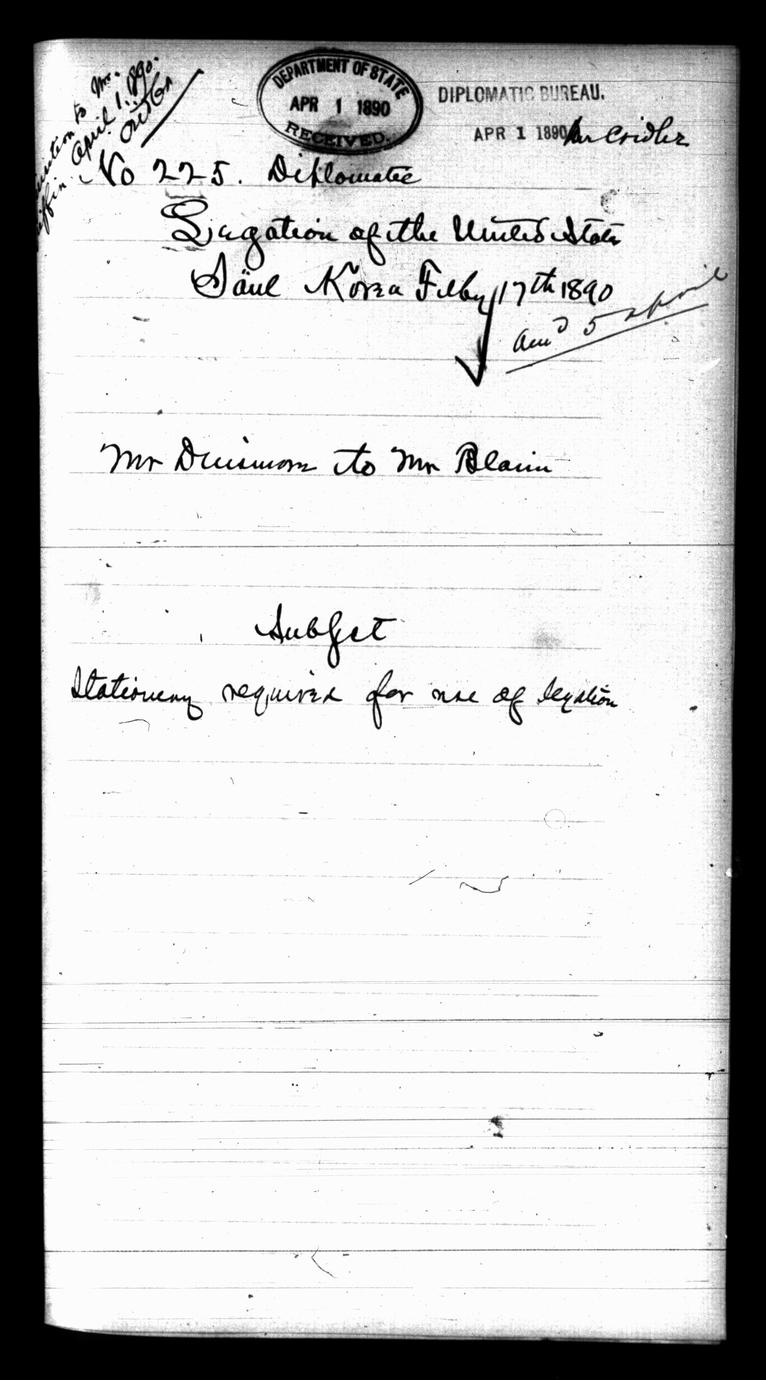 to Mr.
April 1. 1890.
DEPARTMENT OF STATE
APR 1 1890
RECEIVED.
DIPLOMATIC BUREAU.
APR 1 1890 Mr Cridler
No 225. Diplomatic
Legation of the United States
Söul Korea Feby 17th 1890
ansd 5 april
Mr Dinsmore to Mr Blaine
Subject
Stationery required for use of legation